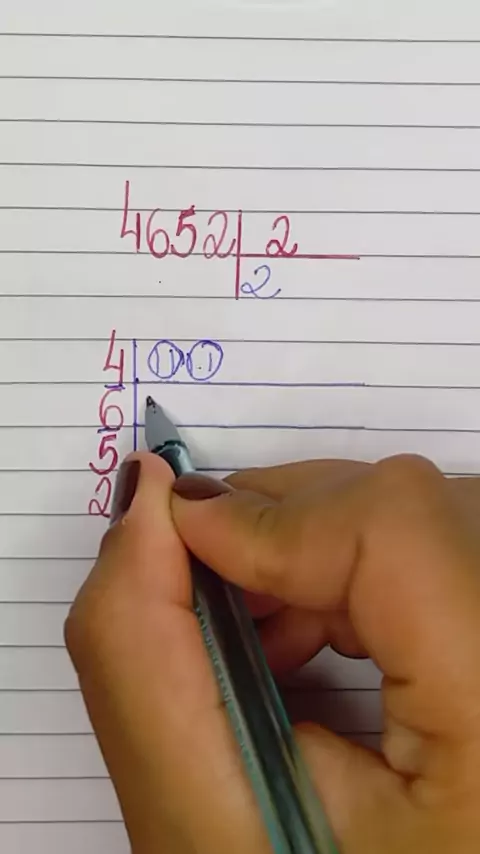 4652 2
2
4
6
5
2